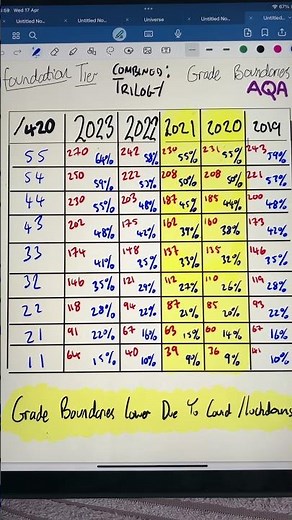 Wed 17 Apr
67%
Untitled No...
Untitled No...
Universe
Untitled No...
Untitled No...
Foundation Tier Combined: Trilogy Grade Boundaries AQA
/420 2023 2022 2021 2020 2019
55 270 64% 242 58% 230 55% 231 55% 243 59%
54 250 59% 222 53% 208 50% 208 50% 221 53%
44 230 55% 203 48% 187 45% 185 44% 200 48%
43 202 48% 175 42% 162 39% 160 38% 173 42%
33 174 41% 148 35% 137 33% 135 32% 146 35%
32 146 35% 121 29% 112 27% 110 26% 119 28%
22 118 28% 94 22% 87 21% 85 20% 93 22%
21 91 22% 67 16% 63 15% 60 14% 67 16%
11 64 15% 40 10% 39 9% 36 9% 41 10%
Grade Boundaries Lower Due To Covid /lockdowns